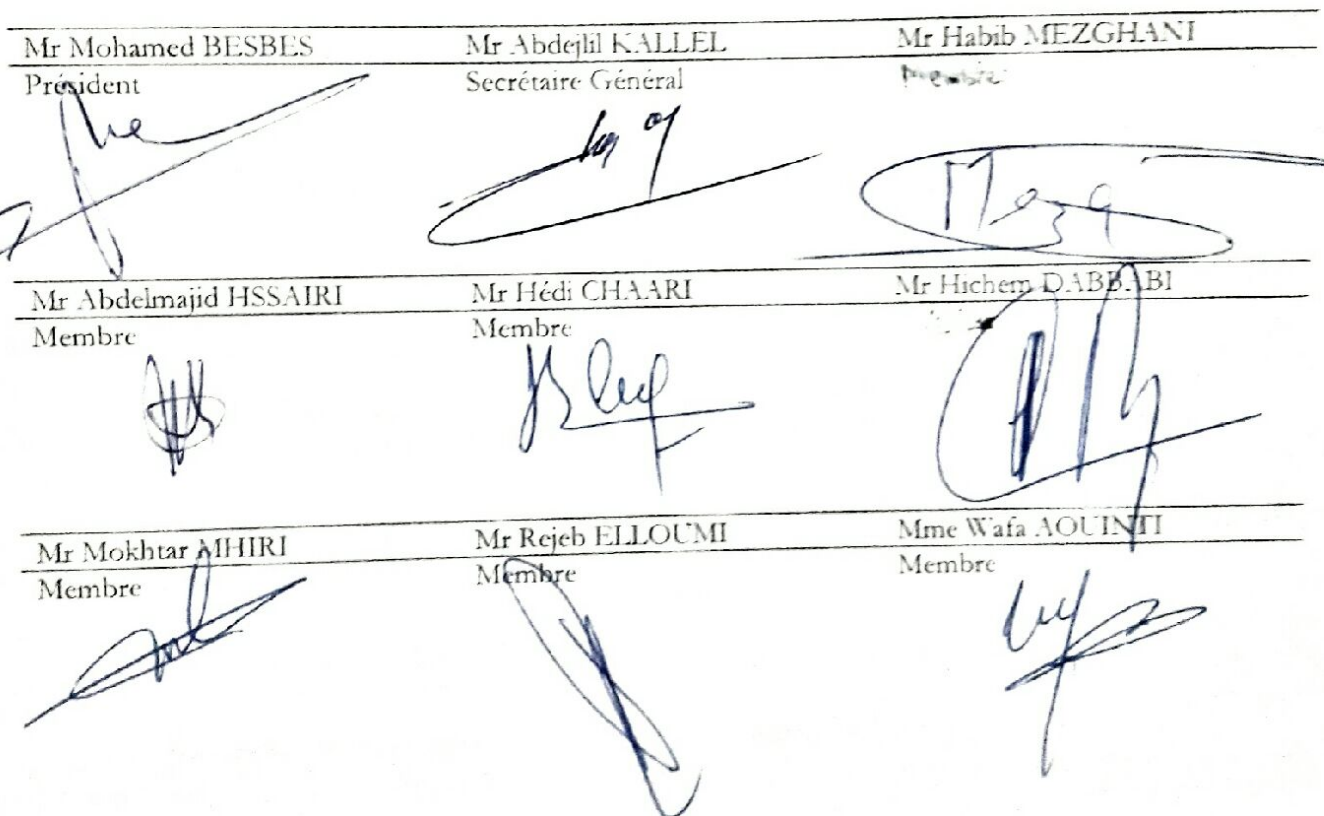 Mr Mohamed BESBES Mr Abdejlil KALLEL Mr Habib MEZGHANI
Président Secrétaire Général Membre
Mezg
Mr Abdelmajid HSSAIRI Mr Hédi CHAARI Mr Hichem DABBABI
Membre Membre
Mr Mokhtar MHIRI Mr Rejeb ELLOUMI Mme Wafa AOUINTI
Membre Membre Membre